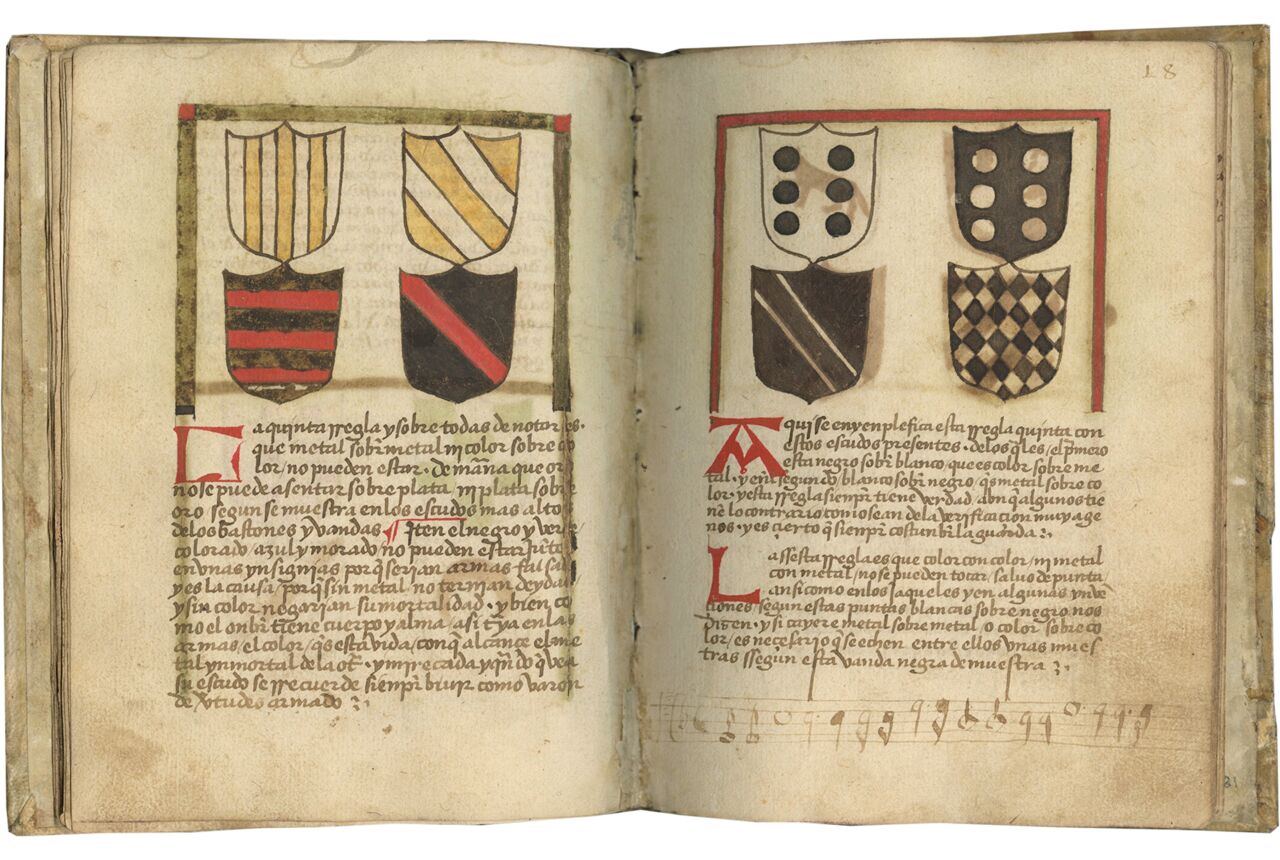 La quinta rregla y sobre todas de notar es.
que metal sobr̃ metal ni color sobre co
lor / no pueden estar · de mãna que oro
nose puede asentar sobre plata ni plata sobre
oro segun se muestra en los escudos mas altos
delos bastones y vandas ¶ Iten el negro y verde
colorado / azul y morado / no pueden estar
en vnas ynsignias porq̃ serian armas falsas
y es la causa / porq̃ sin metal no ternian deydad
y sin color negarian su mortalidad · y bien co
mo el onbr̃ tiene cuerpo y alma · asi en las
armas · el color / q̃ es esta vida / con q̃ alcançe el me
tal ynmortal dela · y q̃ndo q̃ vea
su escudo se rrecuerde sienpr̃ biuir como varon
de v̉tudes armado
18
Aqui se enxenplefica esta rregla quinta con
estos escudos presentes · delos q̃les / el p̃mero
esta negro sobr̃ blanco / que es color sobre me
tal · y en̄l segundo blanco sobr̃ negro q̃s metal sobre co
lor · y esta rregla sienpr̃ tiene verdad aũn q̃ algunos tie
nẽ lo contrario como sean dela verificacion muy age
nos · y es cierto q̃ sienpr̃ costunbr̃ la guarda
La ssesta rregla es que color con color / ni metal
con metal / no se pueden tocar / saluo de punta /
ansi como en los jaqueles y en algunas ynve
ciones segun estas puntas blancas sobre negro nos
dizen · y si cayere metal sobre metal o color sobre co
lor / es necesario q̃ se echen entre ellos vnas mues
tras ssegun esta vanda negra demuestra
31